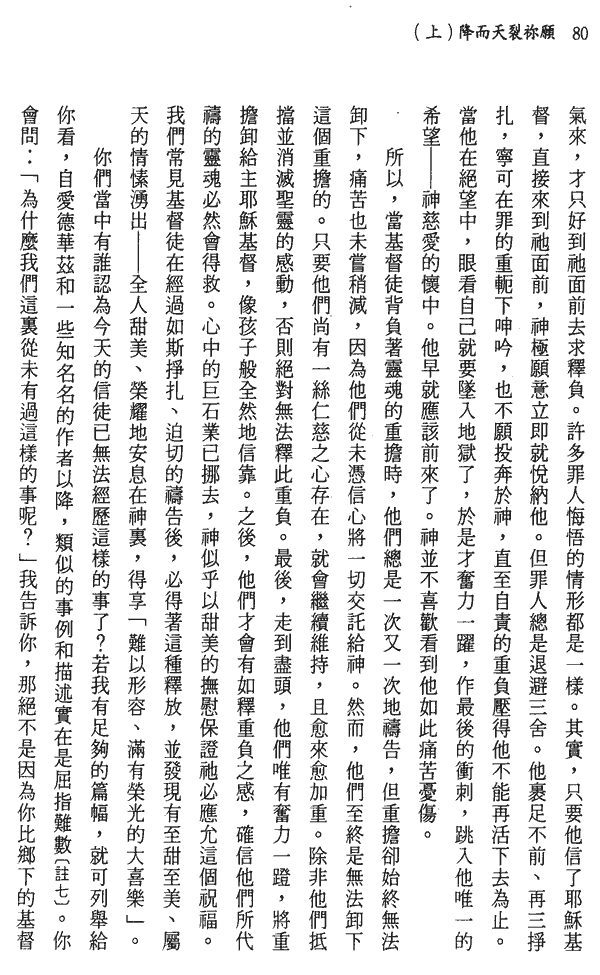 80 願祢裂天而降（上）
氣來，才只好到祂面前去求釋負。許多罪人悔悟的情形都是一樣。其實，只要他信了耶穌基
督，直接來到祂面前，神極願意立即就悅納他。但罪人總是退避三舍。他裹足不前、再三掙
扎，寧可在罪的重軛下呻吟，也不願投奔於神，直至自責的重負壓得他不能再活下去為止。
當他在絕望中，眼看自己就要墜入地獄了，於是才奮力一躍，作最後的衝刺，跳入他唯一的
希望——神慈愛的懷中。他早就應該前來了。神並不喜歡看到他如此痛苦憂傷。
所以，當基督徒背負著靈魂的重擔時，他們總是一次又一次地禱告，但重擔卻始終無法
卸下，痛苦也未嘗稍減，因為他們從未憑信心將一切交託給神。然而，他們至終是無法卸下
這個重擔的。只要他們尚有一絲仁慈之心存在，就會繼續維持，且愈來愈加重。除非他們抵
擋並消滅聖靈的感動，否則絕對無法釋此重負。最後，走到盡頭，他們唯有奮力一蹬，將重
擔卸給主耶穌基督，像孩子般全然地信靠。之後，他們才會有如釋重負之感，確信他們所代
禱的靈魂必然會得救。心中的巨石業已挪去，神似乎以甜美的撫慰保證祂必應允這個祝福。
我們常見基督徒在經過如斯掙扎、迫切的禱告後，必得著這種釋放，並發現有至甜至美、屬
天的情愫湧出——全人甜美、榮耀地安息在神裏，得享「難以形容、滿有榮光的大喜樂」。
你們當中有誰認為今天的信徒已無法經歷這樣的事了？若我有足夠的篇幅，就可列舉給
你看，自愛德華茲和一些知名名的作者以降，類似的事例和描述實在是屈指難數〔註七〕。你
會問：「為什麼我們這裏從未有過這樣的事呢？」我告訴你，那絕不是因為你比鄉下的基督